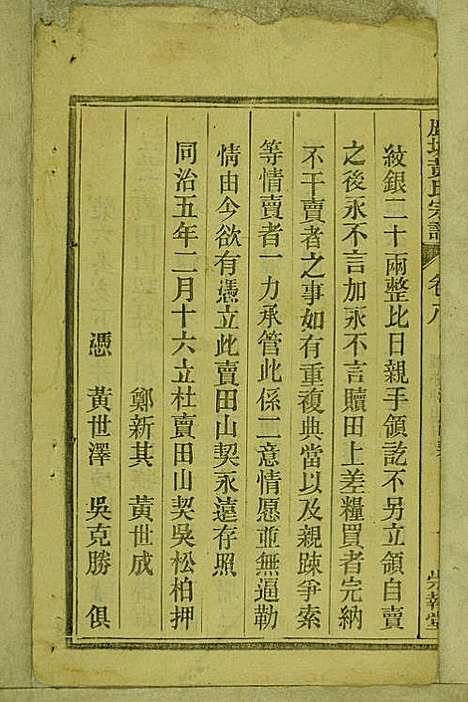 黃氏宗譜
卷八
崇報堂
紋銀二十兩整比日親手領訖不另立領自賣
之後永不言加永不言贖田上差糧買者完納
不干賣者之事如有重複典當以及親踈爭索
等情賣者一力承管此係二意情愿並無逼勒
情由今欲有憑立此賣田山契永遠存照
同治五年二月十六立杜賣田山契吳松柏押
鄭新其 黃世成
憑 黃世澤 吳克勝 俱